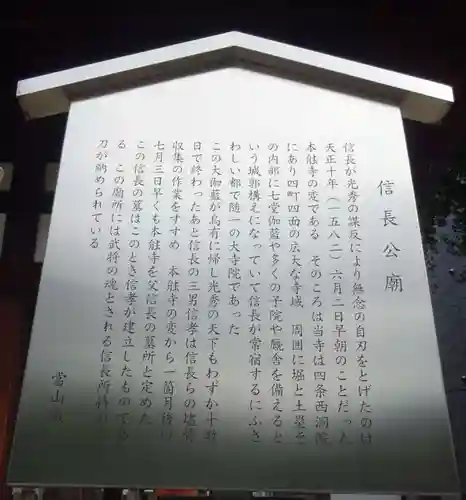 信長公廟
信長が光秀の謀反により無念の自刃をとげたのは
天正十年（一五八二）六月二日早朝のことだった
本能寺の変である そのころは当寺は四条西洞院
にあり四町四面の広大な寺域 周囲に堀と土塁を
の内部に七堂伽藍や多くの子院や厩舎を備えると
いう城郭構えになっていて信長が常宿するにふさ
わしい都で随一の大寺院であった
この大伽藍が烏有に帰し光秀の天下もわずか十数
日で終わったあと信長の三男信孝は信長らの遺骨
収集の作業をすすめ 本能寺の変から一箇月後の
七月三日早くも本能寺を父信長の墓所と定めた
この信長の墓はこのとき信孝が建立したものであ
る この廟所には武将の魂とされる信長所持の
刀が納められている
當山